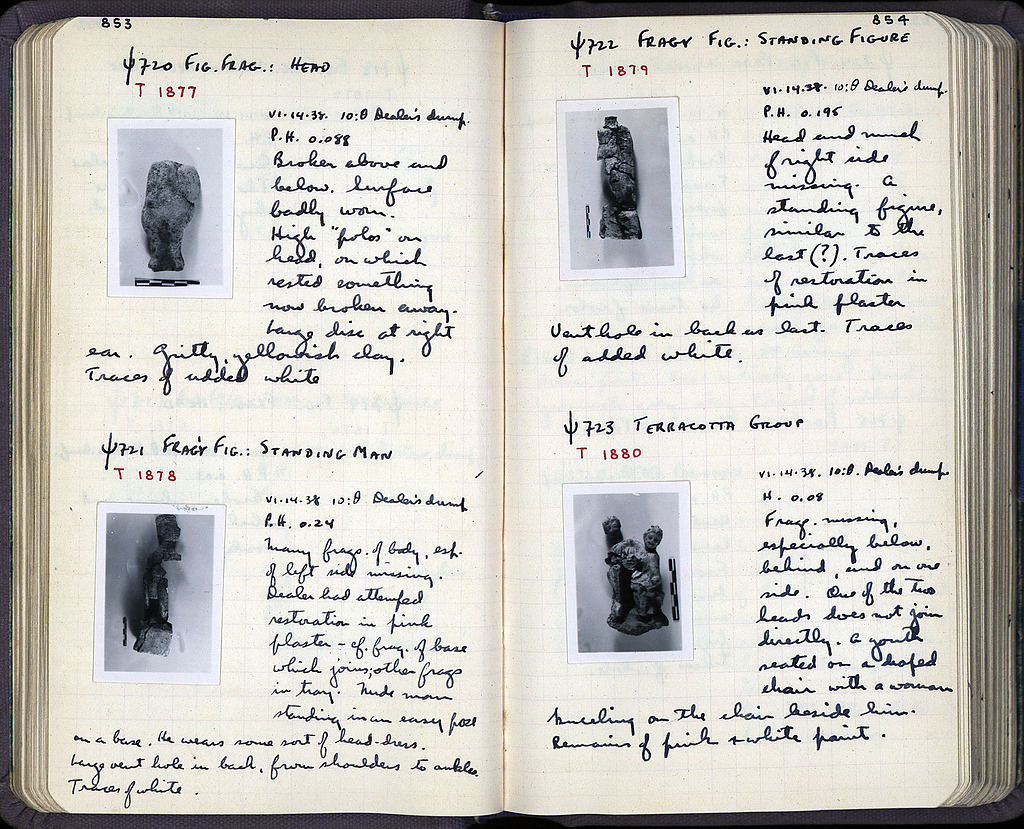 853
ψ720 FIG. FRAG.: HEAD
T 1877
VI-14-38. 10:Θ Dealer's dump.
P.H. 0.088
Broken above and
below. Surface
badly worn.
High "polos" on
head, on which
rested something
now broken away.
Large disc at right
ear. Gritty, yellowish clay.
Traces of added white
ψ721 FRAG'Y FIG.: STANDING MAN
T 1878
VI-14-38 10:Θ Dealer's dump
P.H. 0.24
Many frags. of body, esp.
of left side missing.
Dealer had attempted
restoration in pink
plaster – cf. frag. of base
which joins; other frags
in tray. Nude man
standing in an easy pose
on a base. He wears some sort of head-dress.
Large vent hole in back, from shoulders to ankles.
Traces of white.
854
ψ722 FRAGY FIG.: STANDING FIGURE
T 1879
VI-14-38. 10:Θ Dealer's dump.
P.H. 0.195
Head and much
of right side
missing. A
standing figure,
similar to the
last (?). Traces
of restoration in
pink plaster
Vent hole in back as last. Traces
of added white.
ψ723 TERRACOTTA GROUP
T 1880
VI-14-38. 10:Θ. Dealer's dump.
H. 0.08
Frag. missing,
especially below,
behind, and on one
side. One of the two
heads does not join
directly. A youth
seated on a draped
chair with a woman
kneeling on the chair beside him.
Remains of pink + white paint.